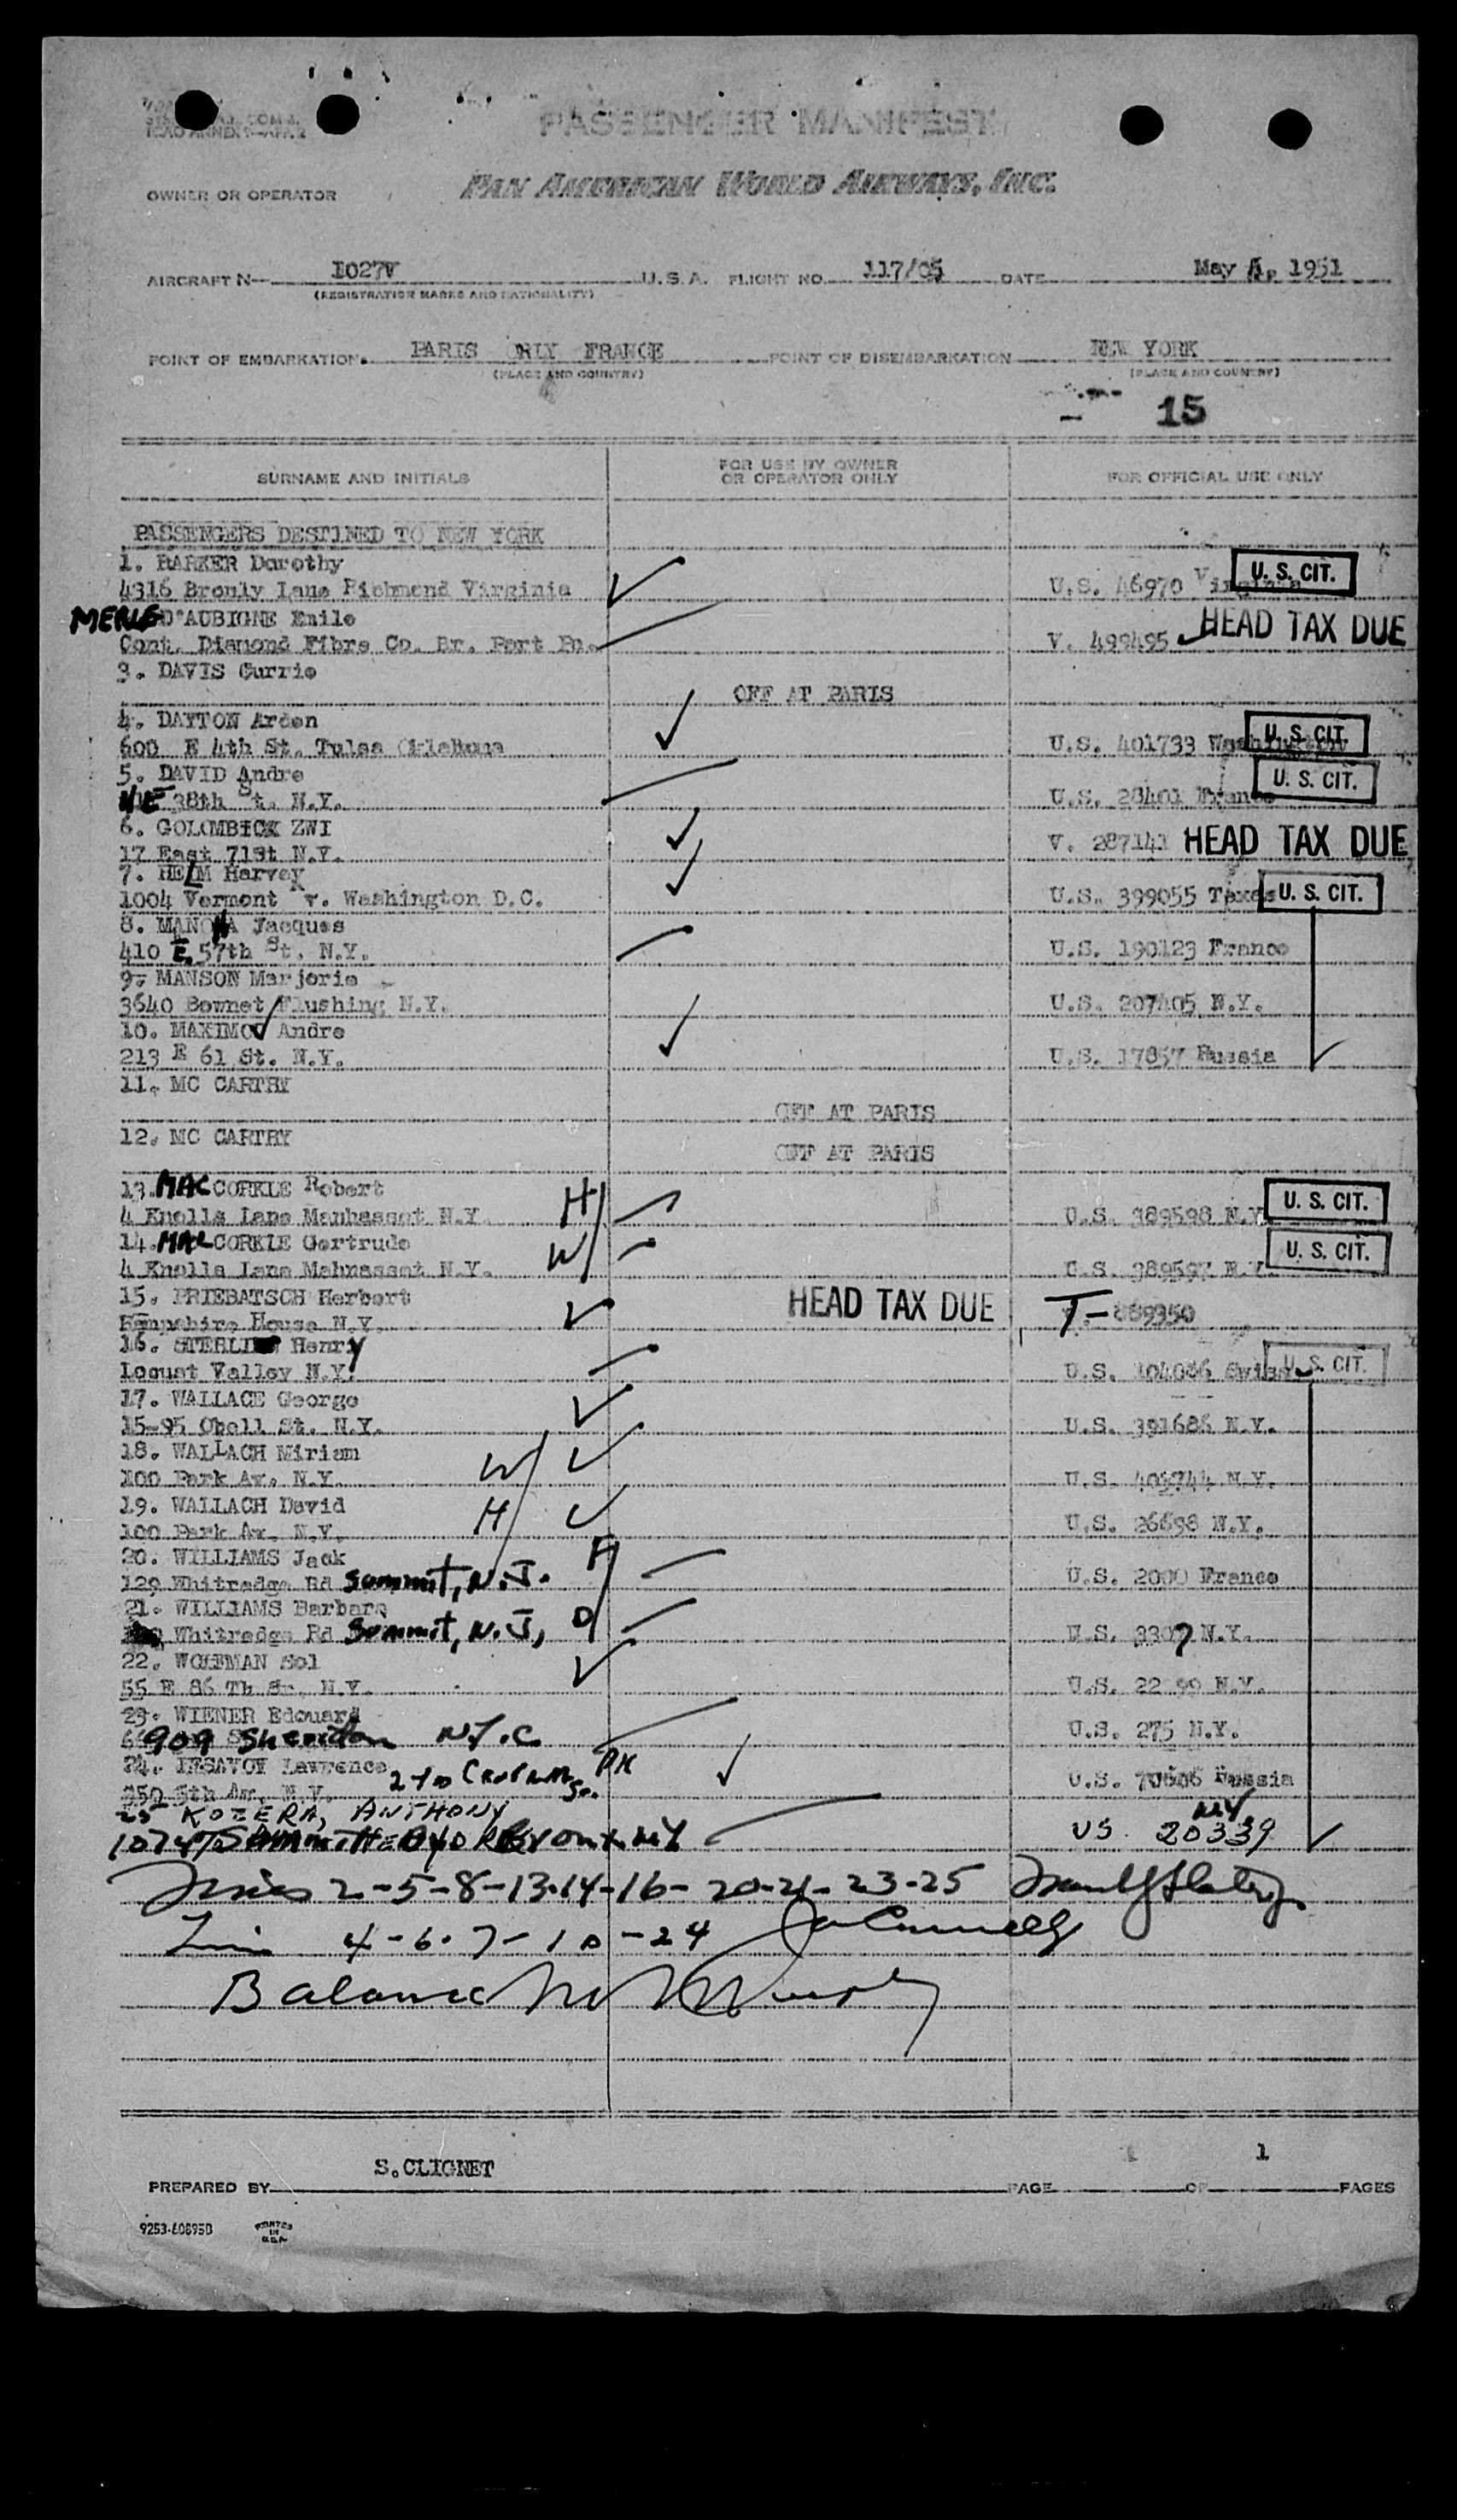 PASSENGER MANIFEST
OWNER OR OPERATOR PAN AMERICAN WORLD AIRWAYS, INC.
AIRCRAFT N— 1027V U.S.A. FLIGHT NO. 117/05 DATE May 1951
(REGISTRATION MARKS AND NATIONALITY)
POINT OF EMBARKATION. PARIS ORLY FRANCE POINT OF DISEMBARKATION NEW YORK
(PLACE AND COUNTRY) (PLACE AND COUNTRY)
15
SURNAME AND INITIALS FOR USE BY OWNER OR OPERATOR ONLY FOR OFFICIAL USE ONLY
PASSENGERS DESTINED TO NEW YORK
1. BARKER Dorothy
4316 Bromly Lane Richmond Virginia U.S. 46970 Virginia U. S. CIT.
MERLE D'AUBIGNE Emile
Cont. Diamond Fibre Co. Br. Port Pn. V. 499495 HEAD TAX DUE
3. DAVIS Currie
OFF AT PARIS
4. DAYTON Arden
600 E 4th St. Tulsa Oklahoma U.S. 401733 Washington U. S. CIT.
5. DAVID Andre
38th St. N.Y. U.S. 28401 France U. S. CIT.
6. GOLOMBICK ZWI
17 East 71st N.Y. V. 287141 HEAD TAX DUE
7. HELM Harvey
1004 Vermont Av. Washington D.C. U.S. 399055 Texas U. S. CIT.
8. MANOHA Jacques
410 E. 57th St. N.Y. U.S. 190123 France
9. MANSON Marjorie
3640 Bownet Flushing N.Y. U.S. 207405 N.Y.
10. MAXIMOV Andre
213 E 61 St. N.Y. U.S. 17857 Russia
11. MC CARTHY
OFF AT PARIS
12. MC CARTHY
OFF AT PARIS
13. MAC CORKLE Robert
4 Knolls Lane Manhasset N.Y. H U.S. 389598 N.Y. U. S. CIT.
14. MAC CORKLE Gertrude
4 Knolls Lane Mahnasset N.Y. W U.S. 389597 N.Y. U. S. CIT.
15. PRIEBATSCH Herbert
Hampshire House N.Y. HEAD TAX DUE T- 889350
16. STERLI Henry
Locust Valley N.Y. U.S. 104086 Swiss U. S. CIT.
17. WALLACE George
15-95 Obell St. N.Y. U.S. 391686 N.Y.
18. WALLACH Miriam
100 Park Av. N.Y. W U.S. 402744 N.Y.
19. WALLACH David
100 Park Av. N.Y. H U.S. 26698 N.Y.
20. WILLIAMS Jack
129 Whitredge Rd Summit, N.J. F U.S. 2000 France
21. WILLIAMS Barbara
Whitredge Rd Summit, N.J, D U.S. 3307 N.Y.
22. WOLFMAN Sol
55 E 86 Th St. N.Y. U.S. 22 99 N.Y.
23. WIENER Edouard
909 Sheridan N.Y.C U.S. 275 N.Y.
24. IESAVOY Lawrence
350 5th Av. N.Y. 210 U.S. 70606 Russia
25 KOZERA, ANTHONY
US. 20339 NY
2-5-8-13-14-16-20-21-23-25
4-6-7-10-24
Balance
PREPARED BY S.CLIGNET PAGE 1 OF 1 PAGES
9253-60895D PRINTED IN U.S.A.